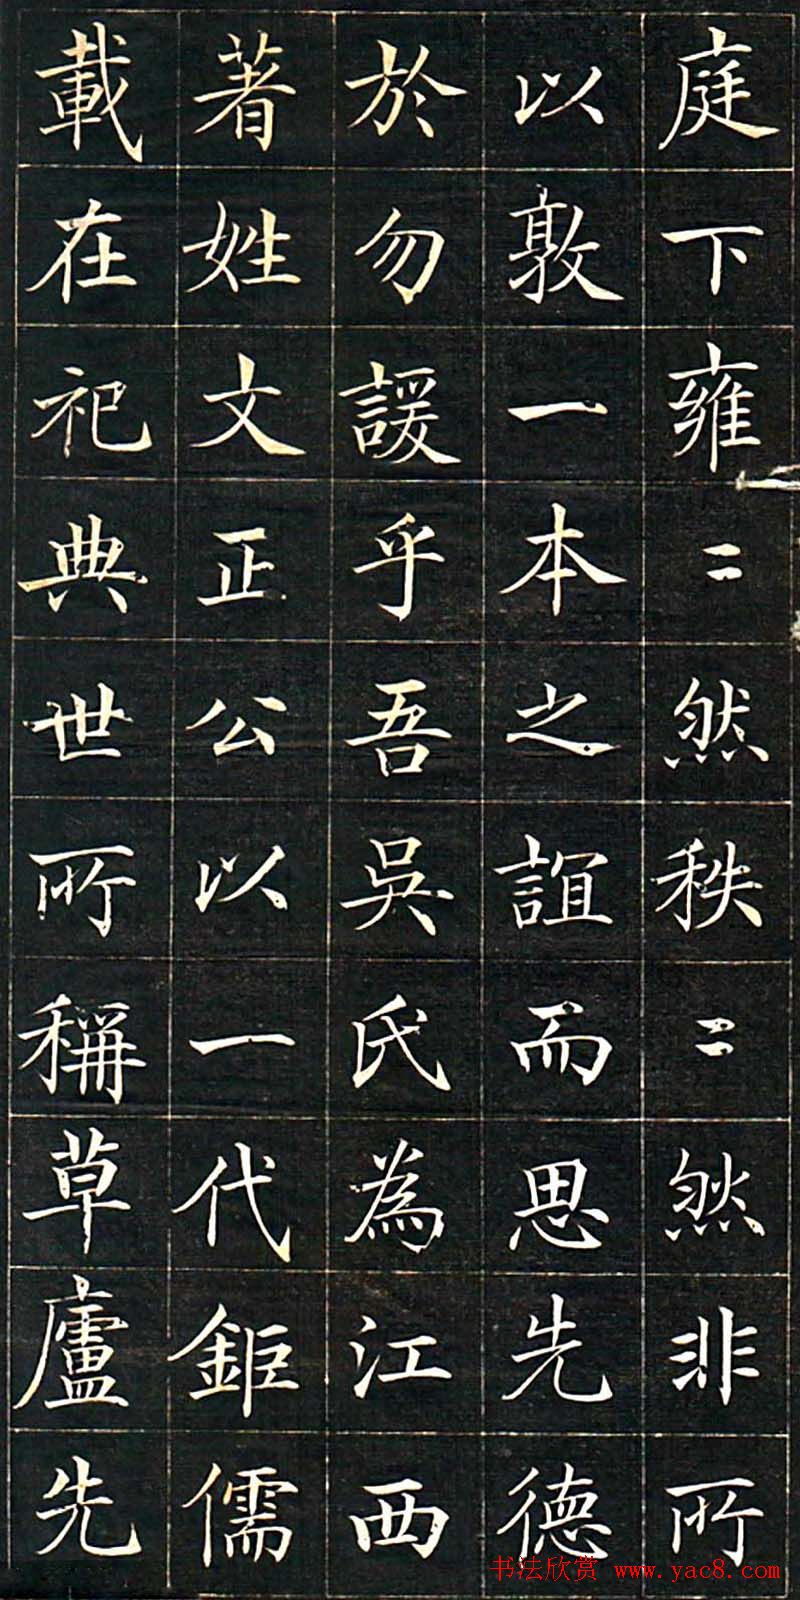 庭下雍〻然秩〻然非所
以敦一本之誼而思先德
於勿諼乎吾吳氏為江西
著姓文正公以一代鉅儒
載在祀典世所稱草廬先
书法欣赏 www.yac8.com